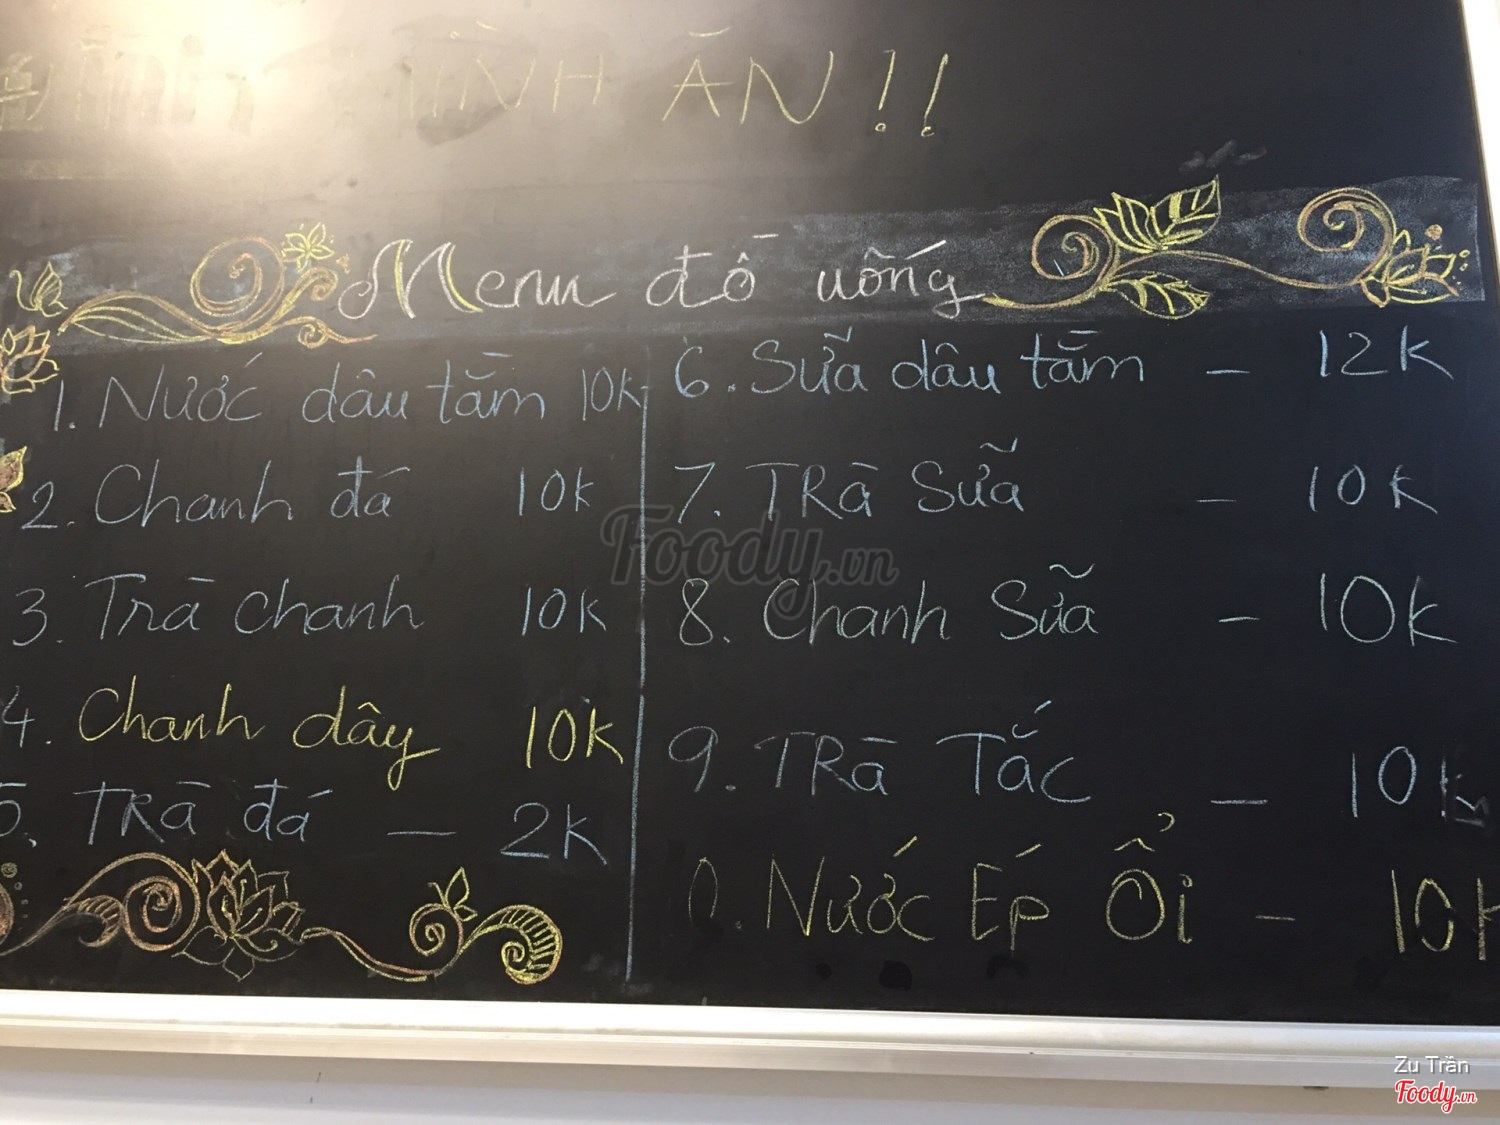 ÌNH ĂN!!
Menu đồ uống
1. Nước dâu tằm 10k
2. Chanh đá 10k
3. Trà chanh 10k
4. Chanh dây 10k
5. Trà đá — 2k
6. Sữa dâu tằm - 12k
7. Trà Sữa - 10k
8. Chanh Sữa - 10k
9. Trà Tắc - 10k
0. Nước Ép Ổi - 10k
Foody.vn
Zu Trần
Foody.vn